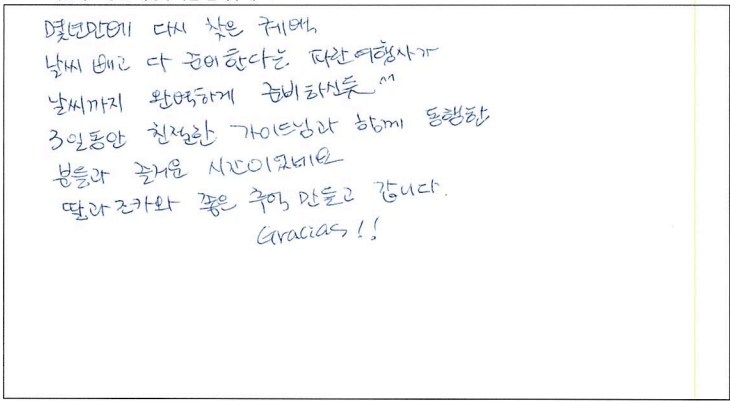 몇년만에 다시 찾은 퀘백
날씨 빼고 다 준비한다는 파란여행사가
날씨까지 완벽하게 준비하신듯 ^^
3일동안 친절한 가이드님과 함께 동행한
분들과 즐거운 시간이었네요
딸과 조카와 좋은 추억 만들고 갑니다.
Gracias!!